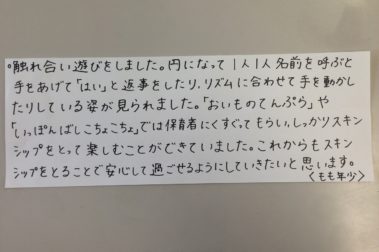 。触れ合い遊びをしました。円になって1人1人名前を呼ぶと
手をあげて「はい」と返事をしたり、リズムに合わせて手を動かし
たりしている姿が見られました。「おいものてんぷら」や
「いっぽんばしこちょこちょ」では保育者にくすぐってもらい、しっかりスキン
シップをとって楽しむことができていました。これからもスキン
シップをとることで安心して過ごせるようにしていきたいと思います。
〈もも年少〉